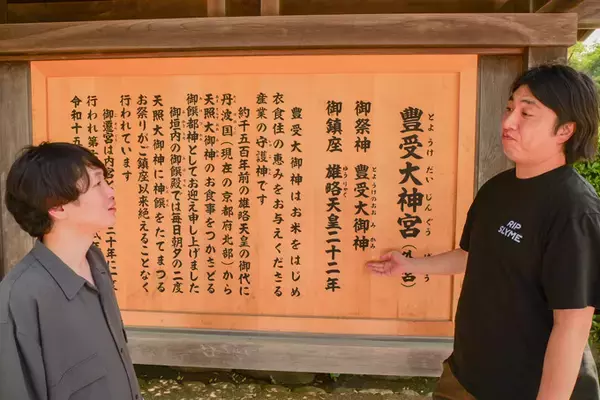 とようけだいじんぐう
豊受大神宮(外宮)
とようけのおおみかみ
御祭神 豊受大御神
ゆうりゃく
御鎮座 雄略天皇二十二年
豊受大御神はお米をはじめ
衣食住の恵みをお与えくださる
産業の守護神です
約千五百年前の雄略天皇の御代に
丹波国(現在の京都府北部)から
天照大御神のお食事をつかさどる
御饌都神としてお迎え申し上げました
御垣内の御饌殿では毎日朝夕の二度
天照大御神に神饌をたてまつる
お祭りがご鎮座以来絶えることなく
行われています
御遷宮は内宮 十年に
行われ第
令和十五
RIP
SLYME